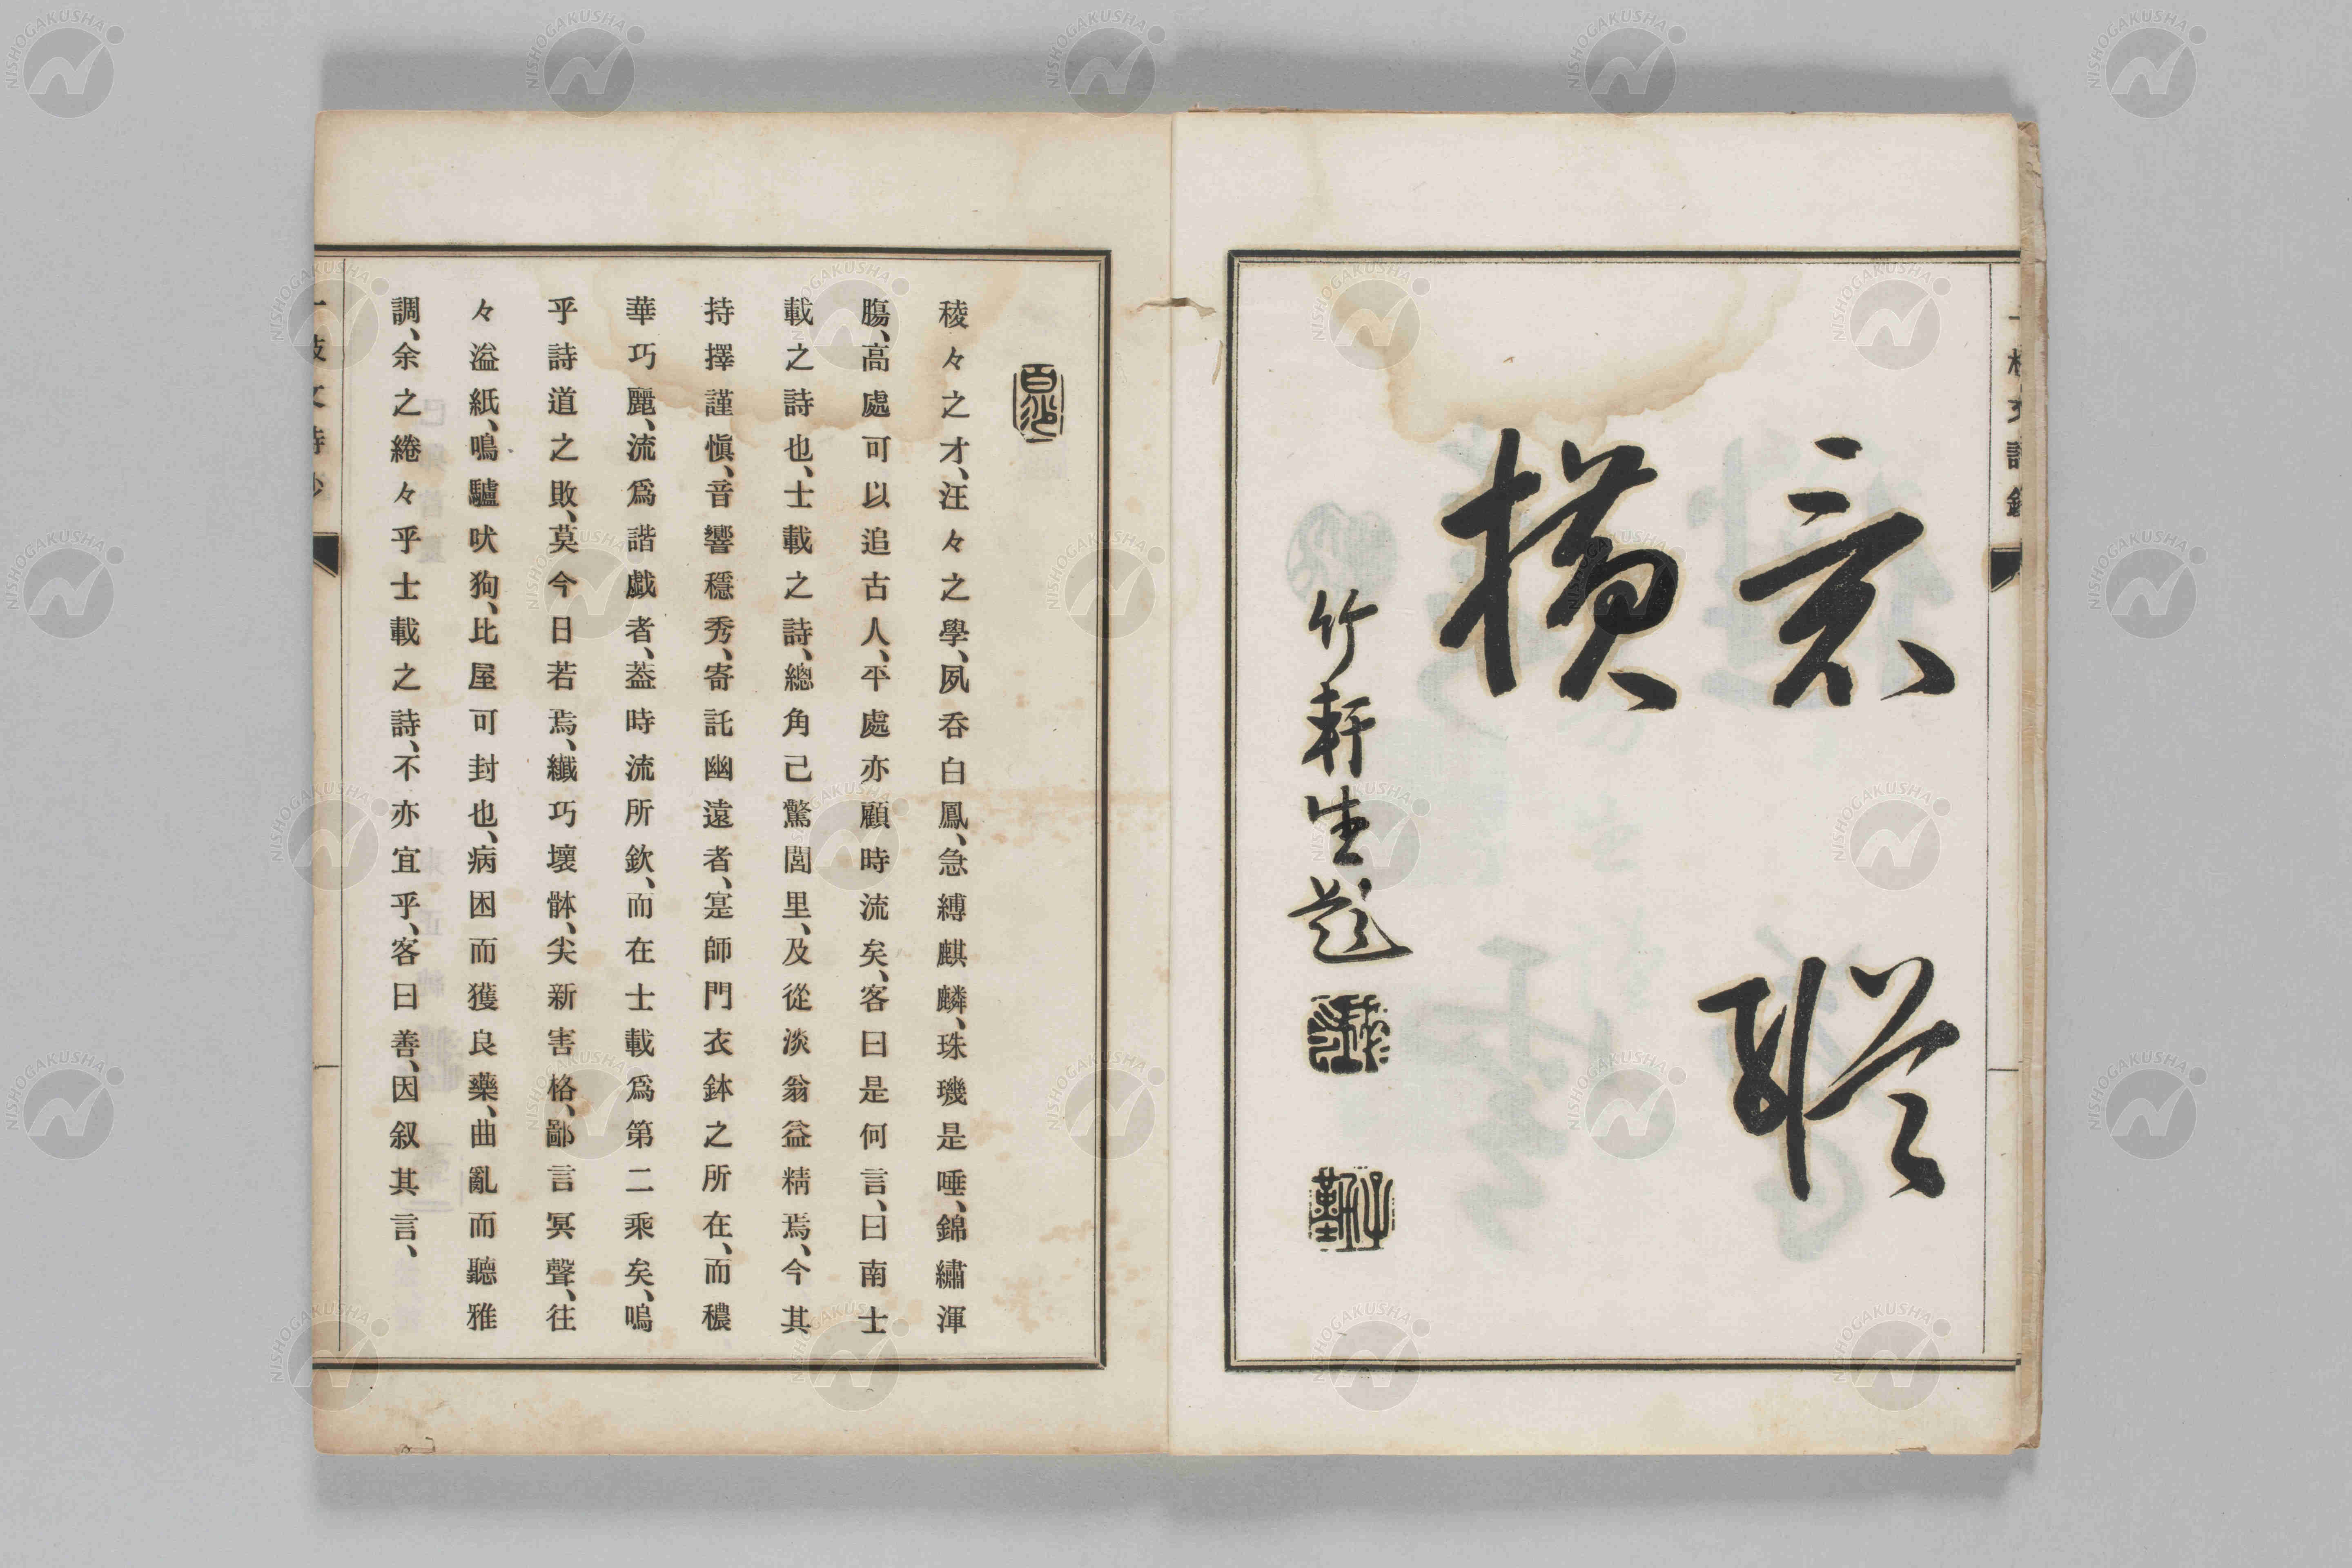 横
竹軒生題
稜々之才、汪々之學、夙呑白鳳、急縛麒麟、珠璣是唾、錦繡渾
膓、高處可以追古人、平處亦顧時流矣、客曰是何言、曰南士
載之詩也、士載之詩、總角己驚閭里、及從淡翁益精焉、今其
持擇謹愼、音響穩秀、寄託幽遠者、寔師門衣鉢之所在、而穠
華巧麗、流爲諧戯者、葢時流所欽、而在士載爲第二乘矣、嗚
乎詩道之敗、莫今日若焉、纎巧壞骵、尖新害格、鄙言冥聲、往
々溢紙、鳴驢吠狗、比屋可封也、病困而獲良藥、曲亂而聽雅
調、余之綣々乎士載之詩、不亦宜乎、客曰善、因叙其言、
NISHOGAKUSHA